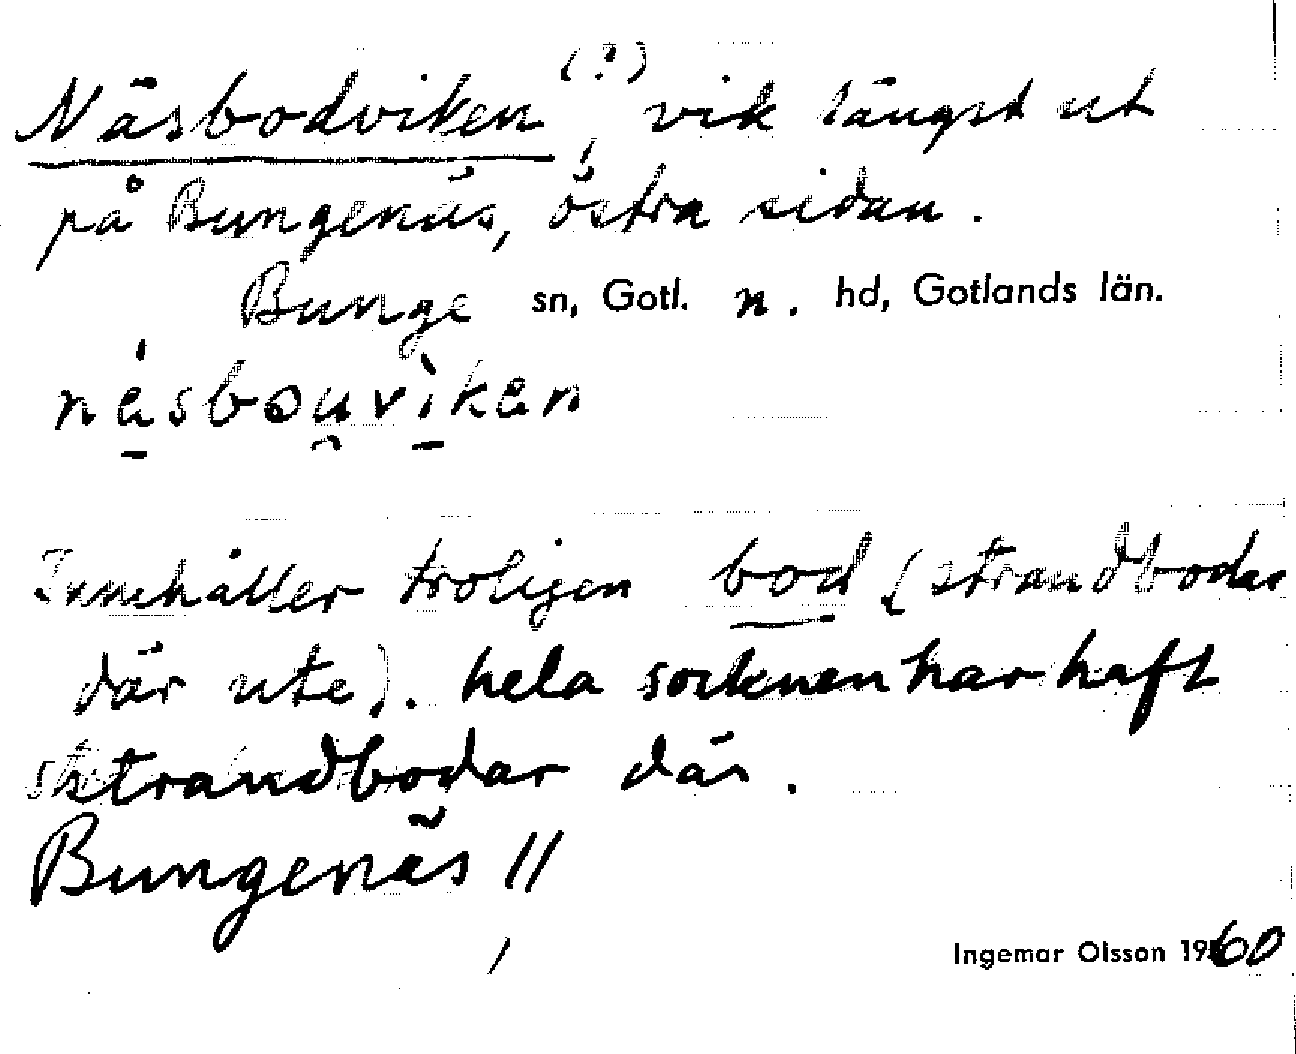 Näsbodviken (?), vik längst ut
på Bungenäs, östra sidan.
Bunge sn, Gotl. n. hd, Gotlands län.
näsbouviken
Innehåller troligen bod (strandbodar
där ute). hela socknen har haft
strandbodar där.
Bungenäs //
Ingemar Olsson 1960